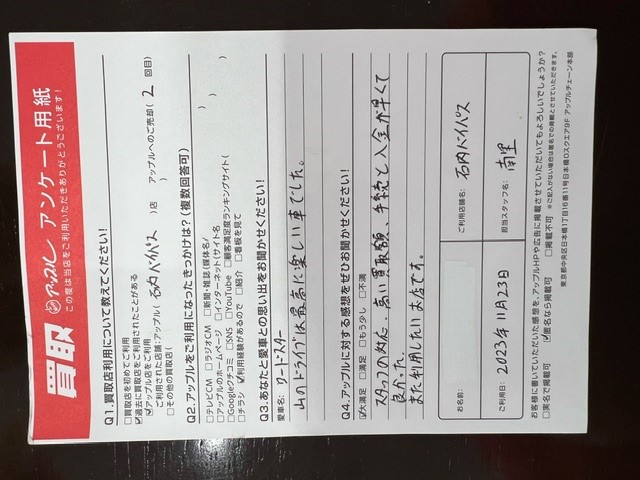 買取 アップル アンケート用紙
この度は当店をご利用いただきありがとうございます!
Q1.買取店利用について教えてください!
□買取店を初めてご利用
☑過去に買取店をご利用されたことがある
☑アップル店をご利用
ご利用された店舗:アップル( 石内バイパス )店 アップルへのご売却( 2 回目)
□その他の買取店( )
Q2.アップルをご利用になったきっかけは?(複数回答可)
□テレビCM □ラジオCM □新聞・雑誌(媒体名/ )
□アップルのホームページ □インターネット(サイト名 )
□Googleクチコミ □SNS □YouTube □顧客満足度ランキングサイト( )
□チラシ ☑利用経験があるので □紹介 □看板を見て
Q3.あなたと愛車との思い出をお聞かせください!
愛車名: ロードスター
山のドライブは最高に楽しい車でした。
Q4.アップルに対する感想をぜひお聞かせください!
☑大満足 □満足 □もう少し □不満
スタッフの対応、高い買取額、手続と入金が早くて
良かった。
また利用したいお店です。
お名前:
ご利用店舗名: 石内バイパス
ご利用日: 2023年11月23日
担当スタッフ名: 南里
お客様に書いていただいた感想を、アップルHPや広告に掲載させていただいてもよろしいでしょうか?
□実名で掲載可 ☑匿名なら掲載可 □掲載不可 ※ご記入がない場合は匿名での掲載とさせていただきます。
東京都中央区日本橋1丁目16番11号日本橋Dスクエア9F アップルチェーン本部